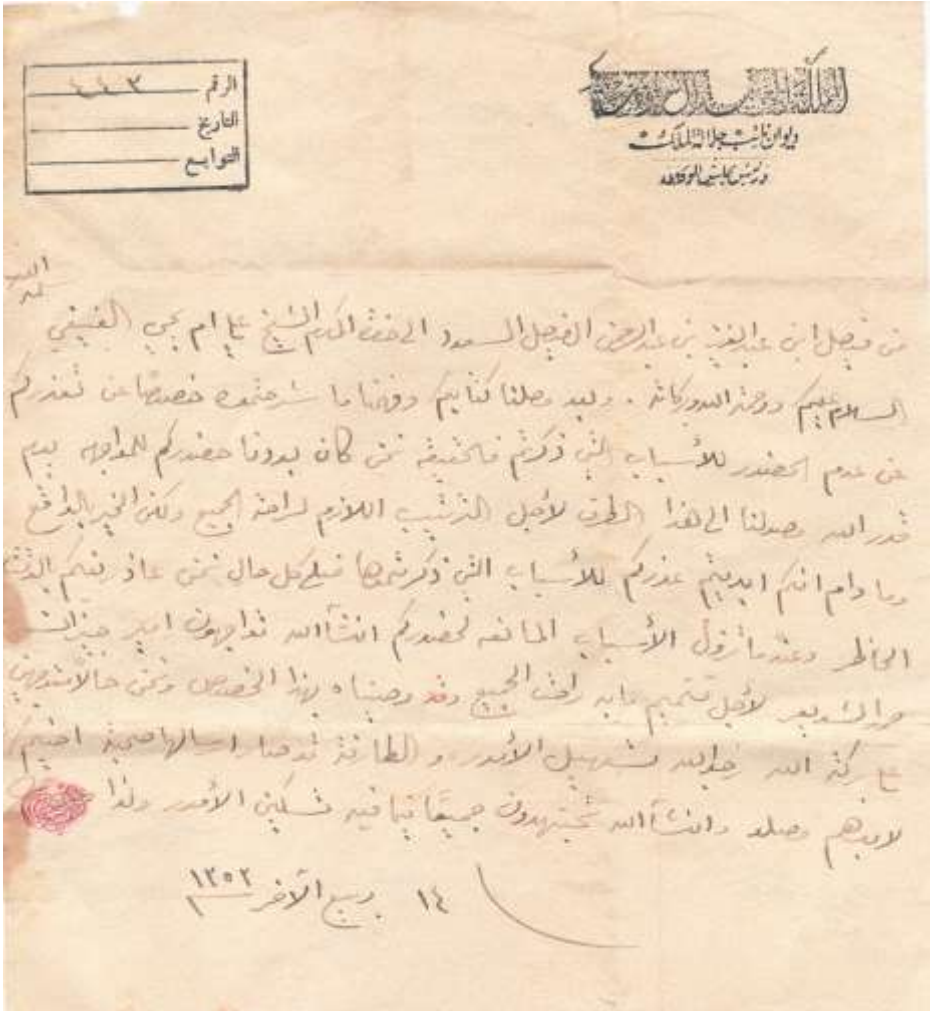 المملكة العربية السعودية
ديوان نائب جلالة الملك
ورئيس مجلس الوكلاء
الرقم ٤٤٣
التاريخ
التوابع
من فيصل ابن عبدالعزيز بن عبدالرحمن الفيصل السعود الى حضرة المكرم الشيخ علي ام يحي الفيفي
السلام عليكم ورحمة الله وبركاته . وبعد وصلنا كتابكم وفهمنا ما شرحتموه خصوصًا عن تعذركم
عن عدم الحضور للأسباب التي ذكرتم فالحقيقة نحن كان بودنا حضوركم للمواجهه يوم
قدر الله وصولنا الى هذا الطرف لأجل الترتيب اللازم لراحة الجميع ولكن الخير بالواقع
وما دام انكم ابديتم عذركم للأسباب التي ذكرتموها فعلى كل حال نحن عاذرينكم
الخاطر وعندما تزول الأسباب المانعه لحضوركم انشاالله تواجهون امير جيزان
حمد الشويعر لأجل تتميم مابه راحة الجميع وقد وصيناه بهذا الخصوص ونحن حالا متوجهين
على بركة الله نرجوا الله تسهيل الأمور و ارسالها صحبة
لابدهم وصلو وانشاالله تجتهدون جميعًا فيما فيه تسكين الأمور ولذا
١٤ ربيع الآخر ١٣٥٢